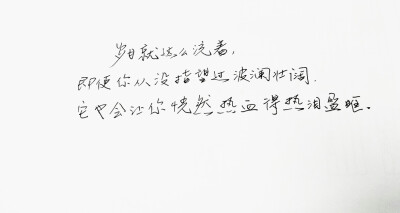 岁月就这么流着,
即便你从没指望过波澜壮阔.
它也会让你恍然热血得热泪盈眶.